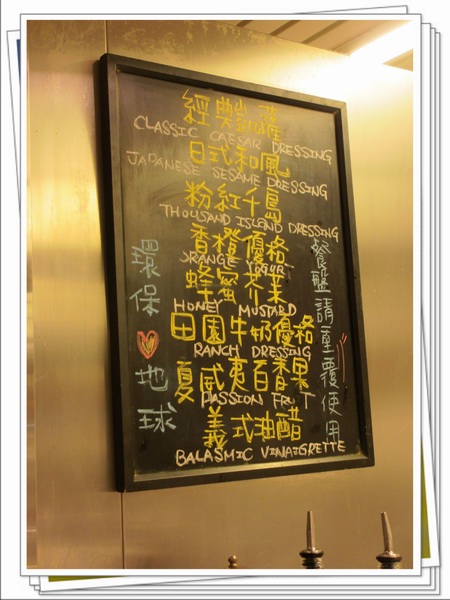 經典凱薩
CLASSIC CAESAR DRESSING
日式和風
JAPANESE SESAME DRESSING
粉紅千島
THOUSAND ISLAND DRESSING
香橙優格
ORANGE YOGURT
蜂蜜芥茉
HONEY MUSTARD
田園牛奶優格
RANCH DRESSING
夏威夷百香果
PASSION FRUIT
義式油醋
BALASMIC VINAIGRETTE
環保♡地球
餐盤請重覆使用